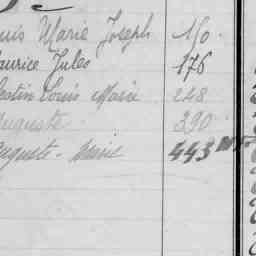 ouis Marie Joseph 170
aurice Jules 176
lestin Louis Marie 248
Auguste 390
Auguste - Marie 443